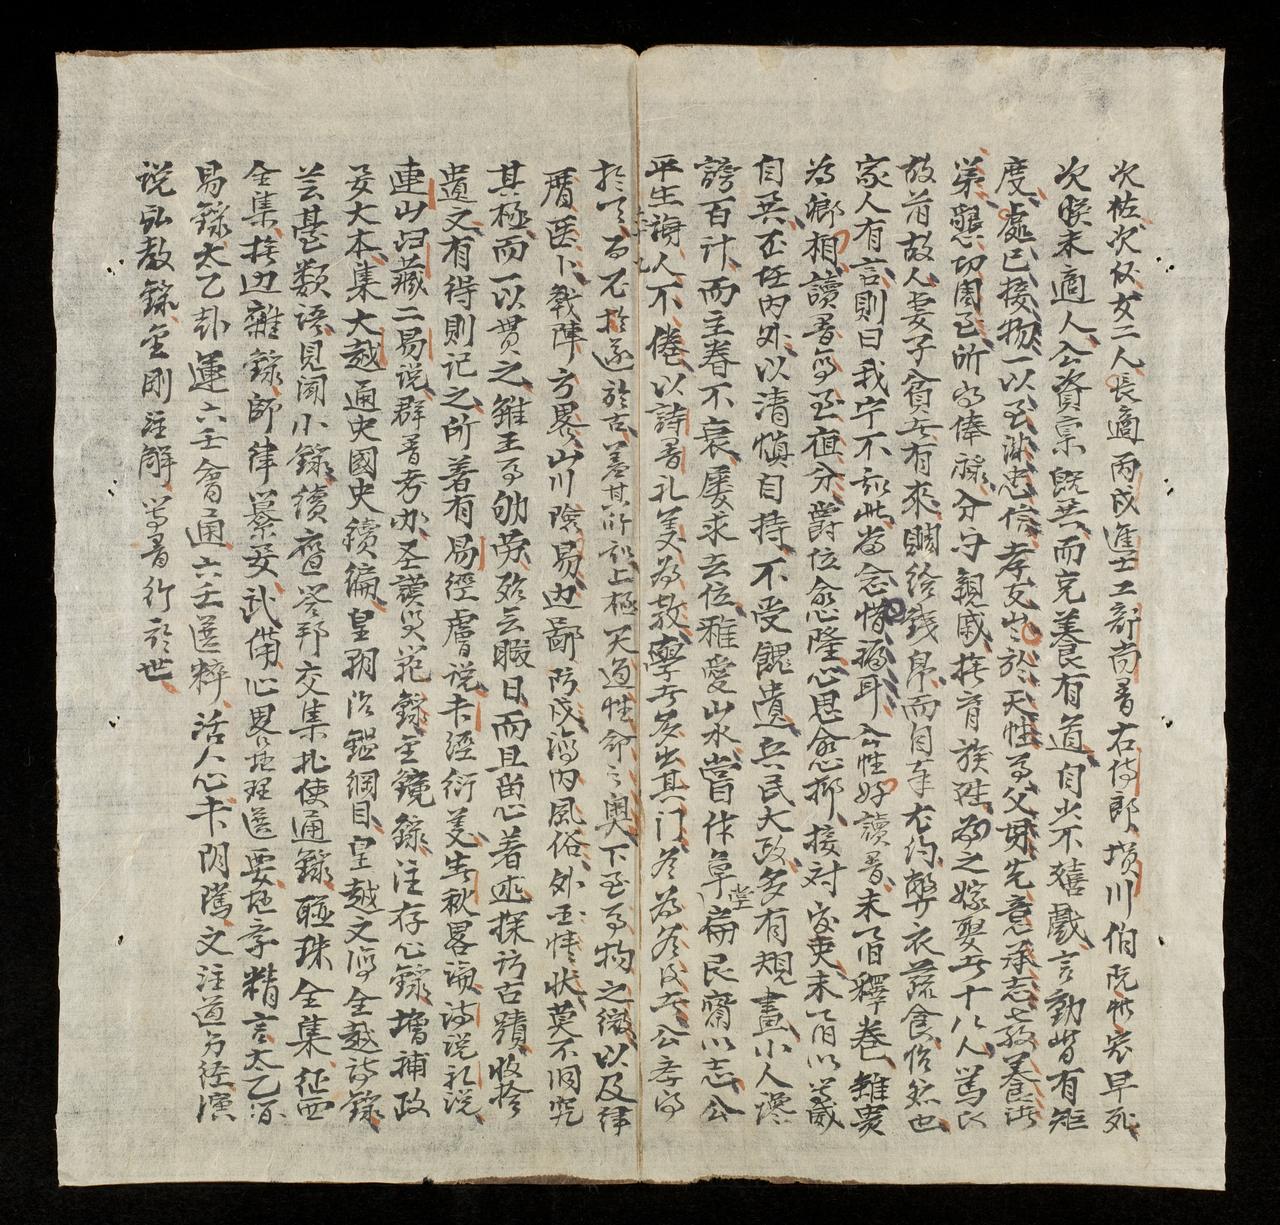 次佐次役女二人長適丙戌進士工部尚書右侍郎瓆川伯阮世宏早死
次暎未適人公資禀旣異而充養有道自少不嬉戲言動皆有矩
度處已接物一以至誠忠信孝友出於天性事父母先意承志
弟懇切周至所得俸祿分与親戚撫育族姓為之嫁娶者十八人篤以
故旧故人妻子貧乏有來賙給錢帛而自奉右約弊衣蔬食怡然也
家人有言則曰我宁不知此當念惜福耳公性好讀書未甞釋卷雖貴
為鄉相讀書寫至夜分爵位愈隆心思愈抑接対交吏未甞以
自異至任內外以清慎自持不受餽遺兵民大政多有規畫小人讒
謗百計而主眷不衰屢求去位雅愛山水嘗作草堂扁艮齋以志公
平生誨人不倦以詩書礼義為教學者多出其门公孝
於百不於遂於古盖其所知上極天道性命之奧下至事物之微以及律
曆医卜戰陣方畧山川險易边鄙防戍海內風俗外国情狀莫不洞究
其極而一以貫之雖王事劬勞殆无暇日而且留心著述探訪古蹟收拾
遺文有得則記之所著有易經膚说书經衍義春秋畧論詩说礼说
連山归藏二易说群書考办圣谟賢范錄金鏡錄注存心錄增補政
要大本集大越通史國史續編皇朝治鑑綱目皇越文海全越詩錄
芸臺類語見聞小錄續應荅邦交集北使通錄聯珠全集征西
全集撫边雜錄師律纂要武俻心畧地理選要地学精言太乙
易錄太乙卦運六壬會通六壬選粹活人心书阴隲文注道
说弘教錄金刚注解等書行於世